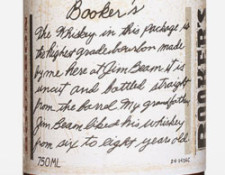 Booker's
The Whiskey in this package is
the highest grade bourbon made
by me here at Jim Beam it is
uncut and bottled straight
from the barrel My grandfather,
Jim Beam liked his whiskey
from six to eight years old.
750ML
BOOKER'S